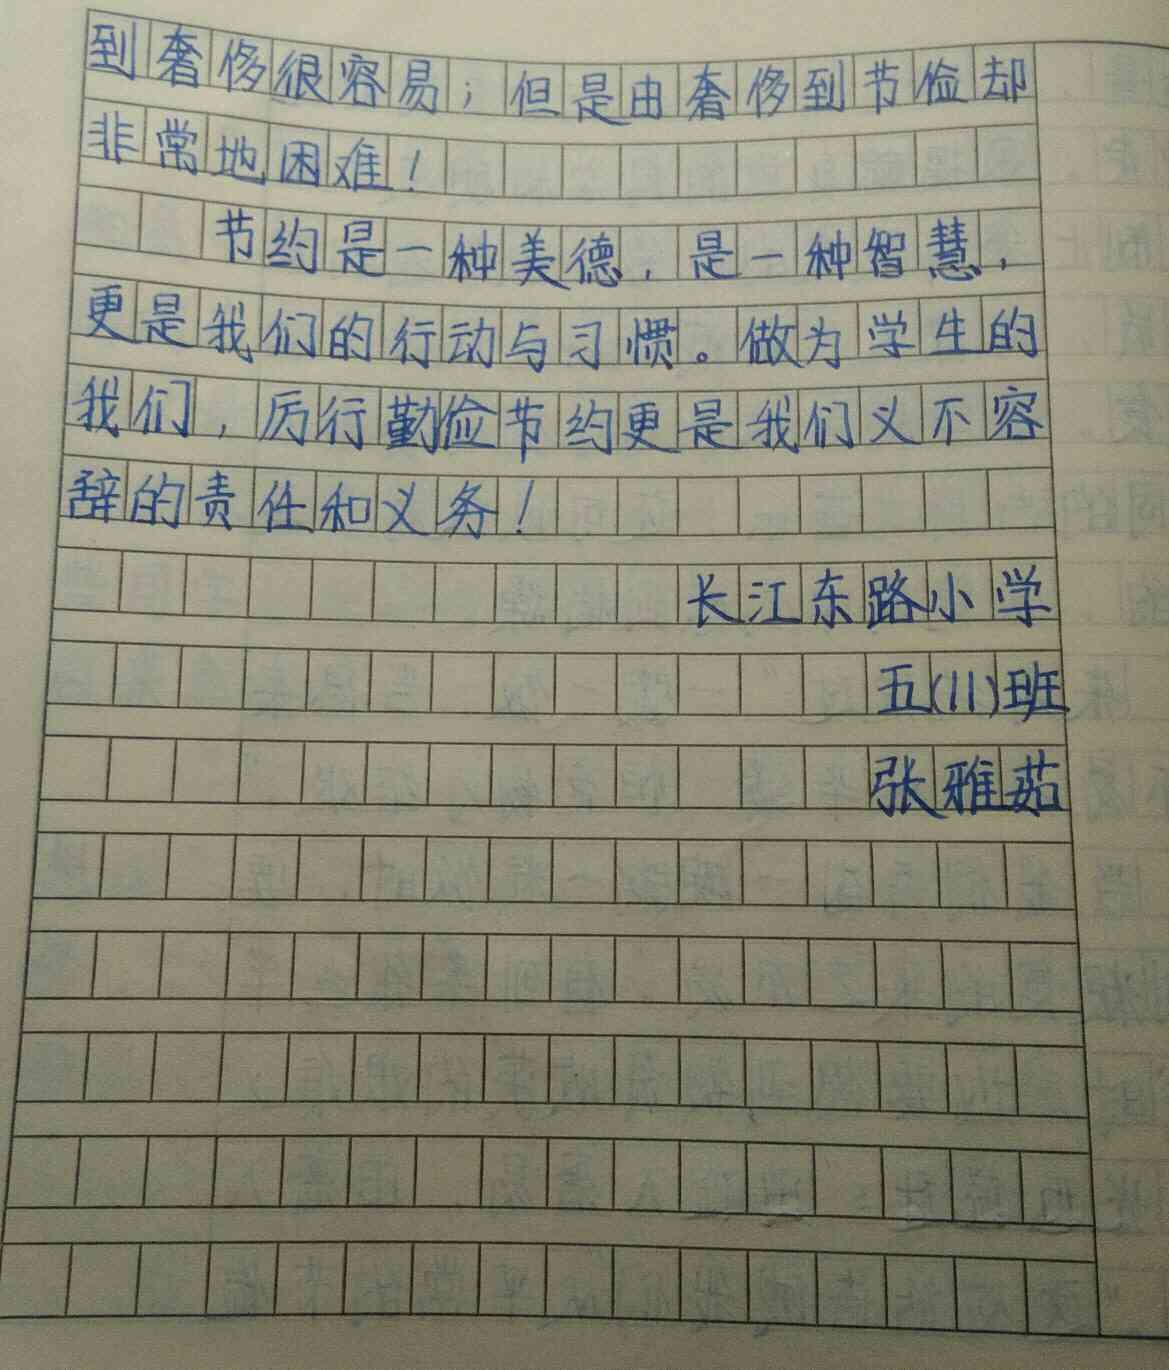 到奢侈很容易；但是由奢侈到节俭却
非常地困难！
节约是一种美德，是一种智慧，
更是我们的行动与习惯。做为学生的
我们，厉行勤俭节约更是我们义不容
辞的责任和义务！
长江东路小学
五(11)班
张雅茹